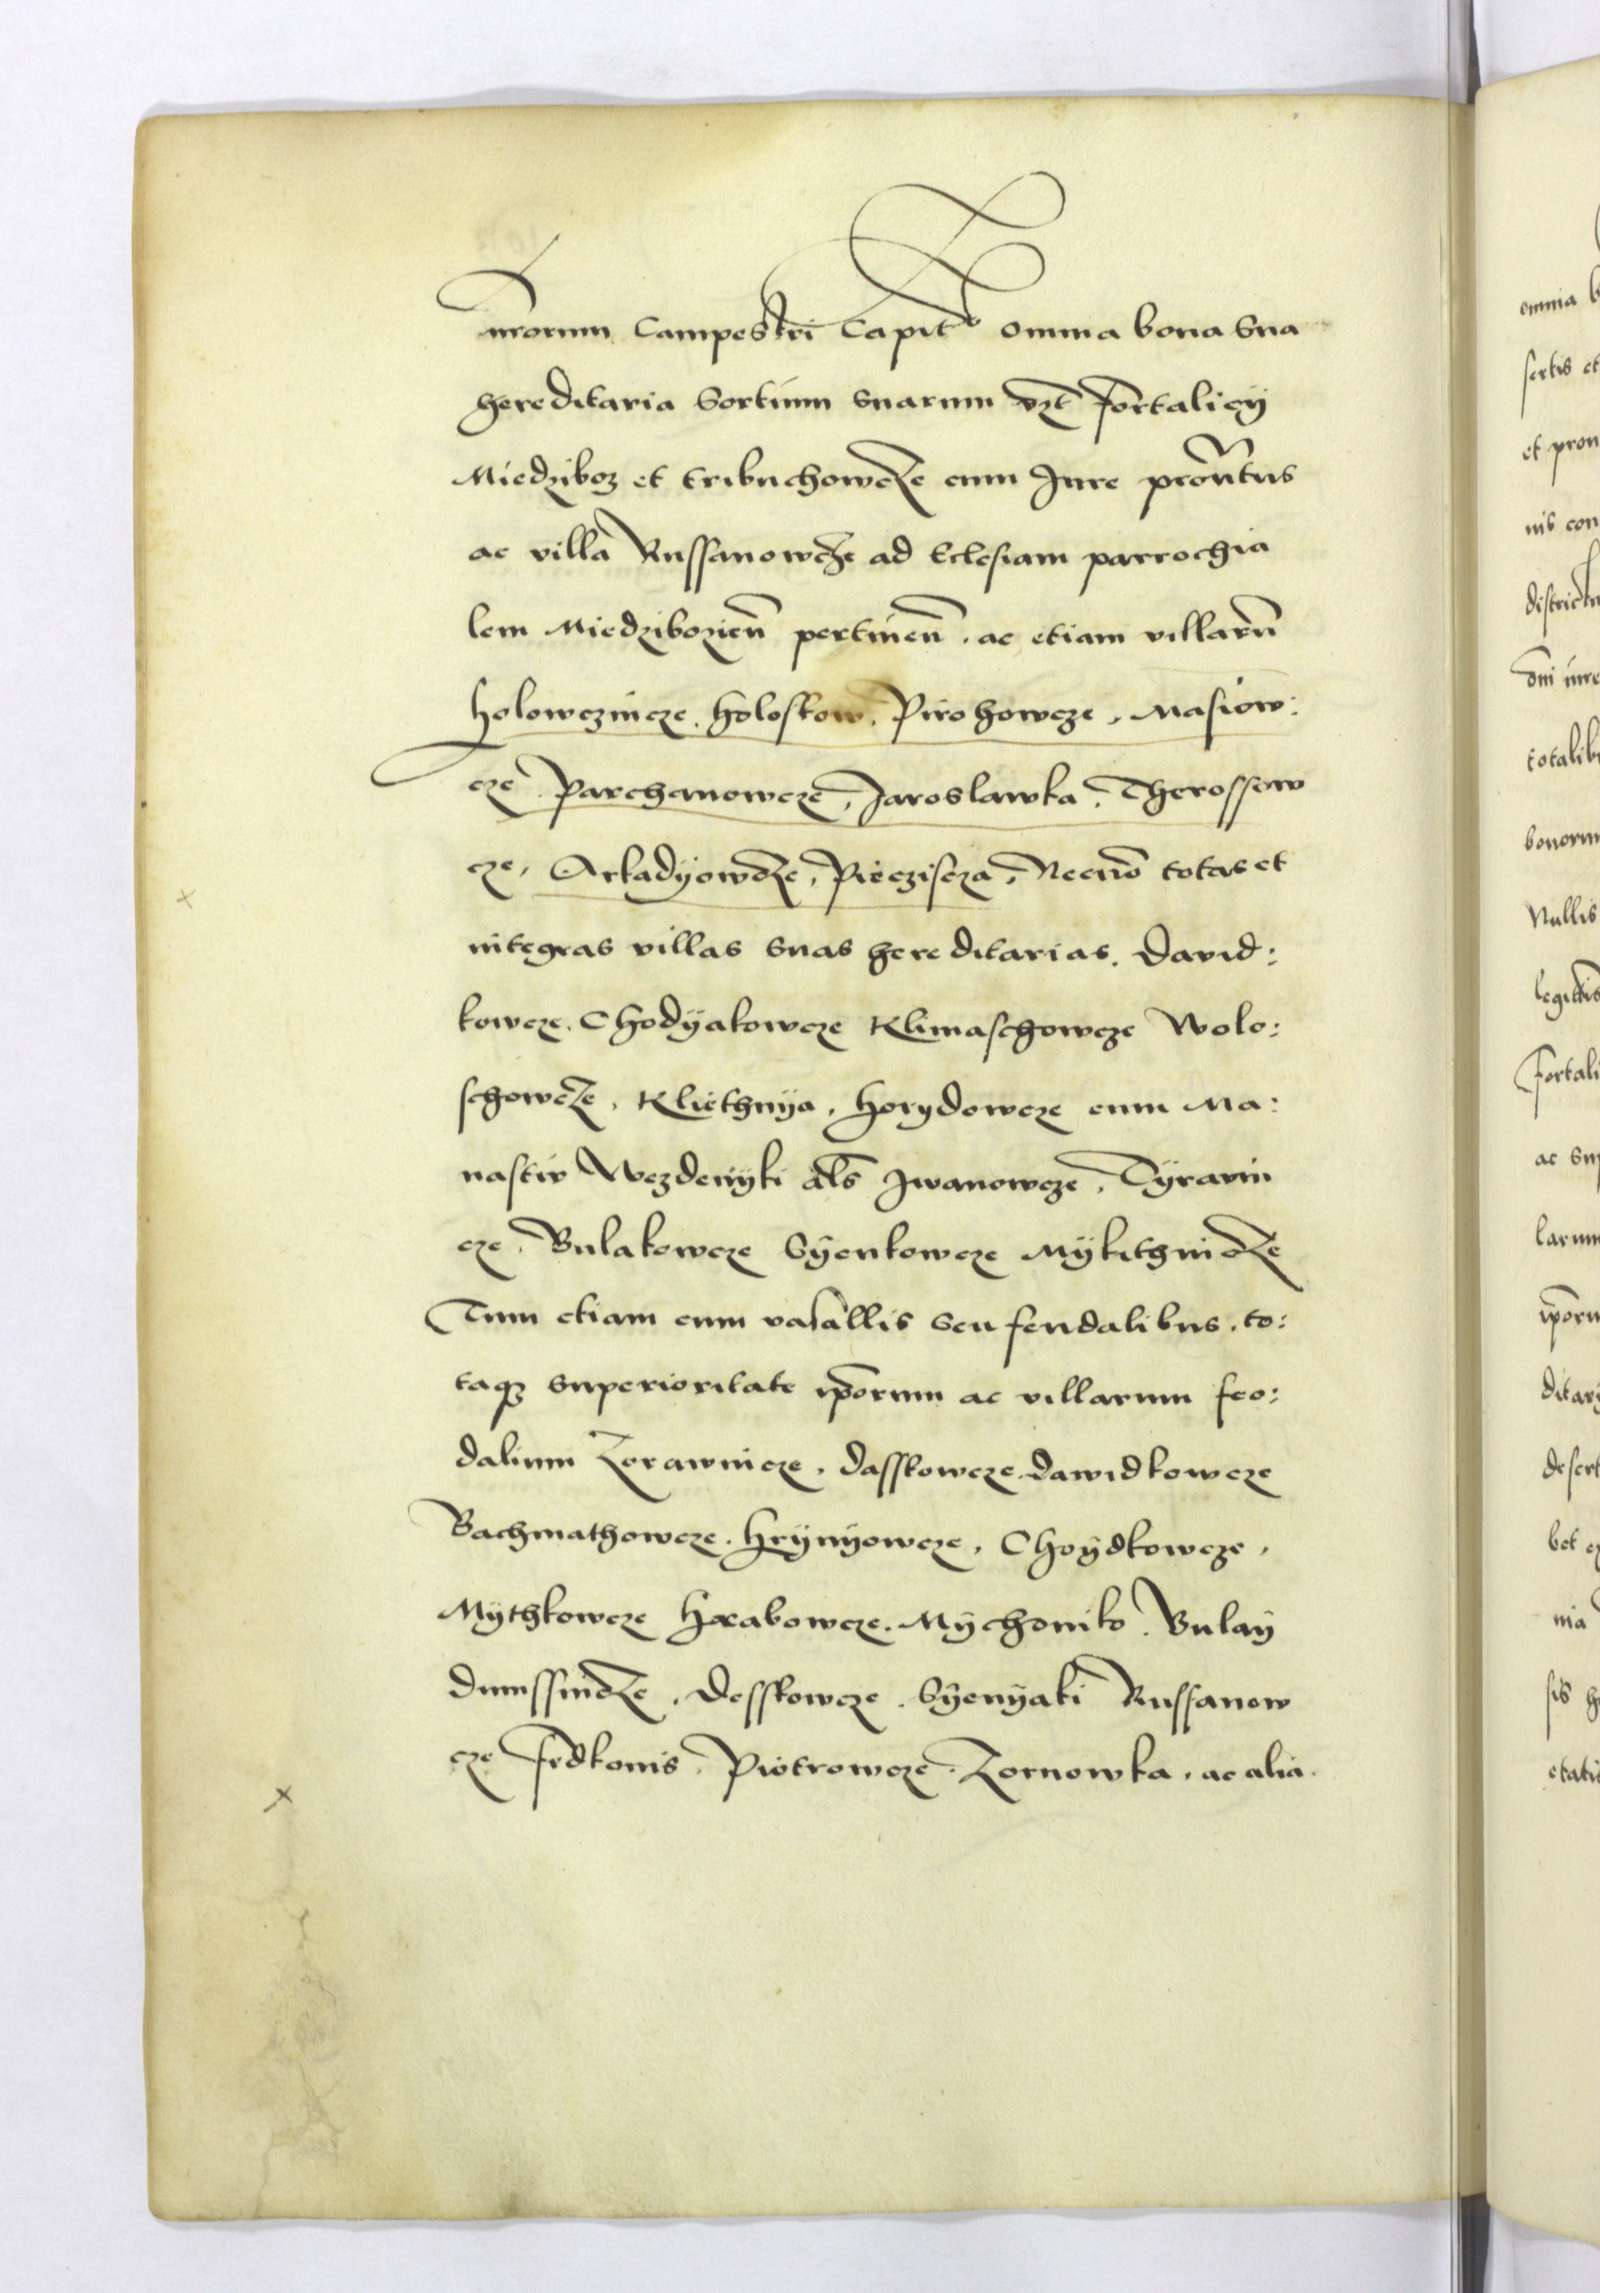 nrorum Campestri Capit° omnia bona sua
hereditaria sortium suarum vzt fortalicÿ
Miedziboz et tribuchowcze cum Jure pronatus
ac villa Russanowcze ad Eclesiam parrochia
lem Miedzibozien pertinen . ac etiam villaru
holowczincze . holoskow . Pirohowcze . Masiow:
cze Parchanowcze , Jaroslawka . Therossow
cze , Arkadÿowcze , Piecziscza , Necno totas et
integras villas suas hereditarias . David:
kowcze . Chodÿakowcze Klimaschowcze Wolo:
schowcze , Kliethnÿa , horydowcze cum Ma:
nastir Wezdenÿki als Jwanowcze , Tÿravin
cze , Bulakowcze Sÿenkowcze Mÿkithnicze
Tum etiam cum vasallis seu feudalibus . to:
taq3 superioritate iporum ac villarum feo:
dalium Zorawnicze , dasskowcze dawidkowcze
Bachmathowcze . hrÿnÿowcze , Choÿdkowcze ,
Mÿthkowcze hrabowcze . Mÿchoniko . Bulaÿ
dumssincze , desskowcze . Sÿenÿaki Russanow
cze fedkonis , Piotrowcze . Zornowka , ac alia
omnia
sertis et
et pron
nis con
districtu
dni iure
totalib
bonorum
Nullis
legittis
fortali
ac su
larum
iporu
ditarÿ
desert
bet
nia
sis h
etatis